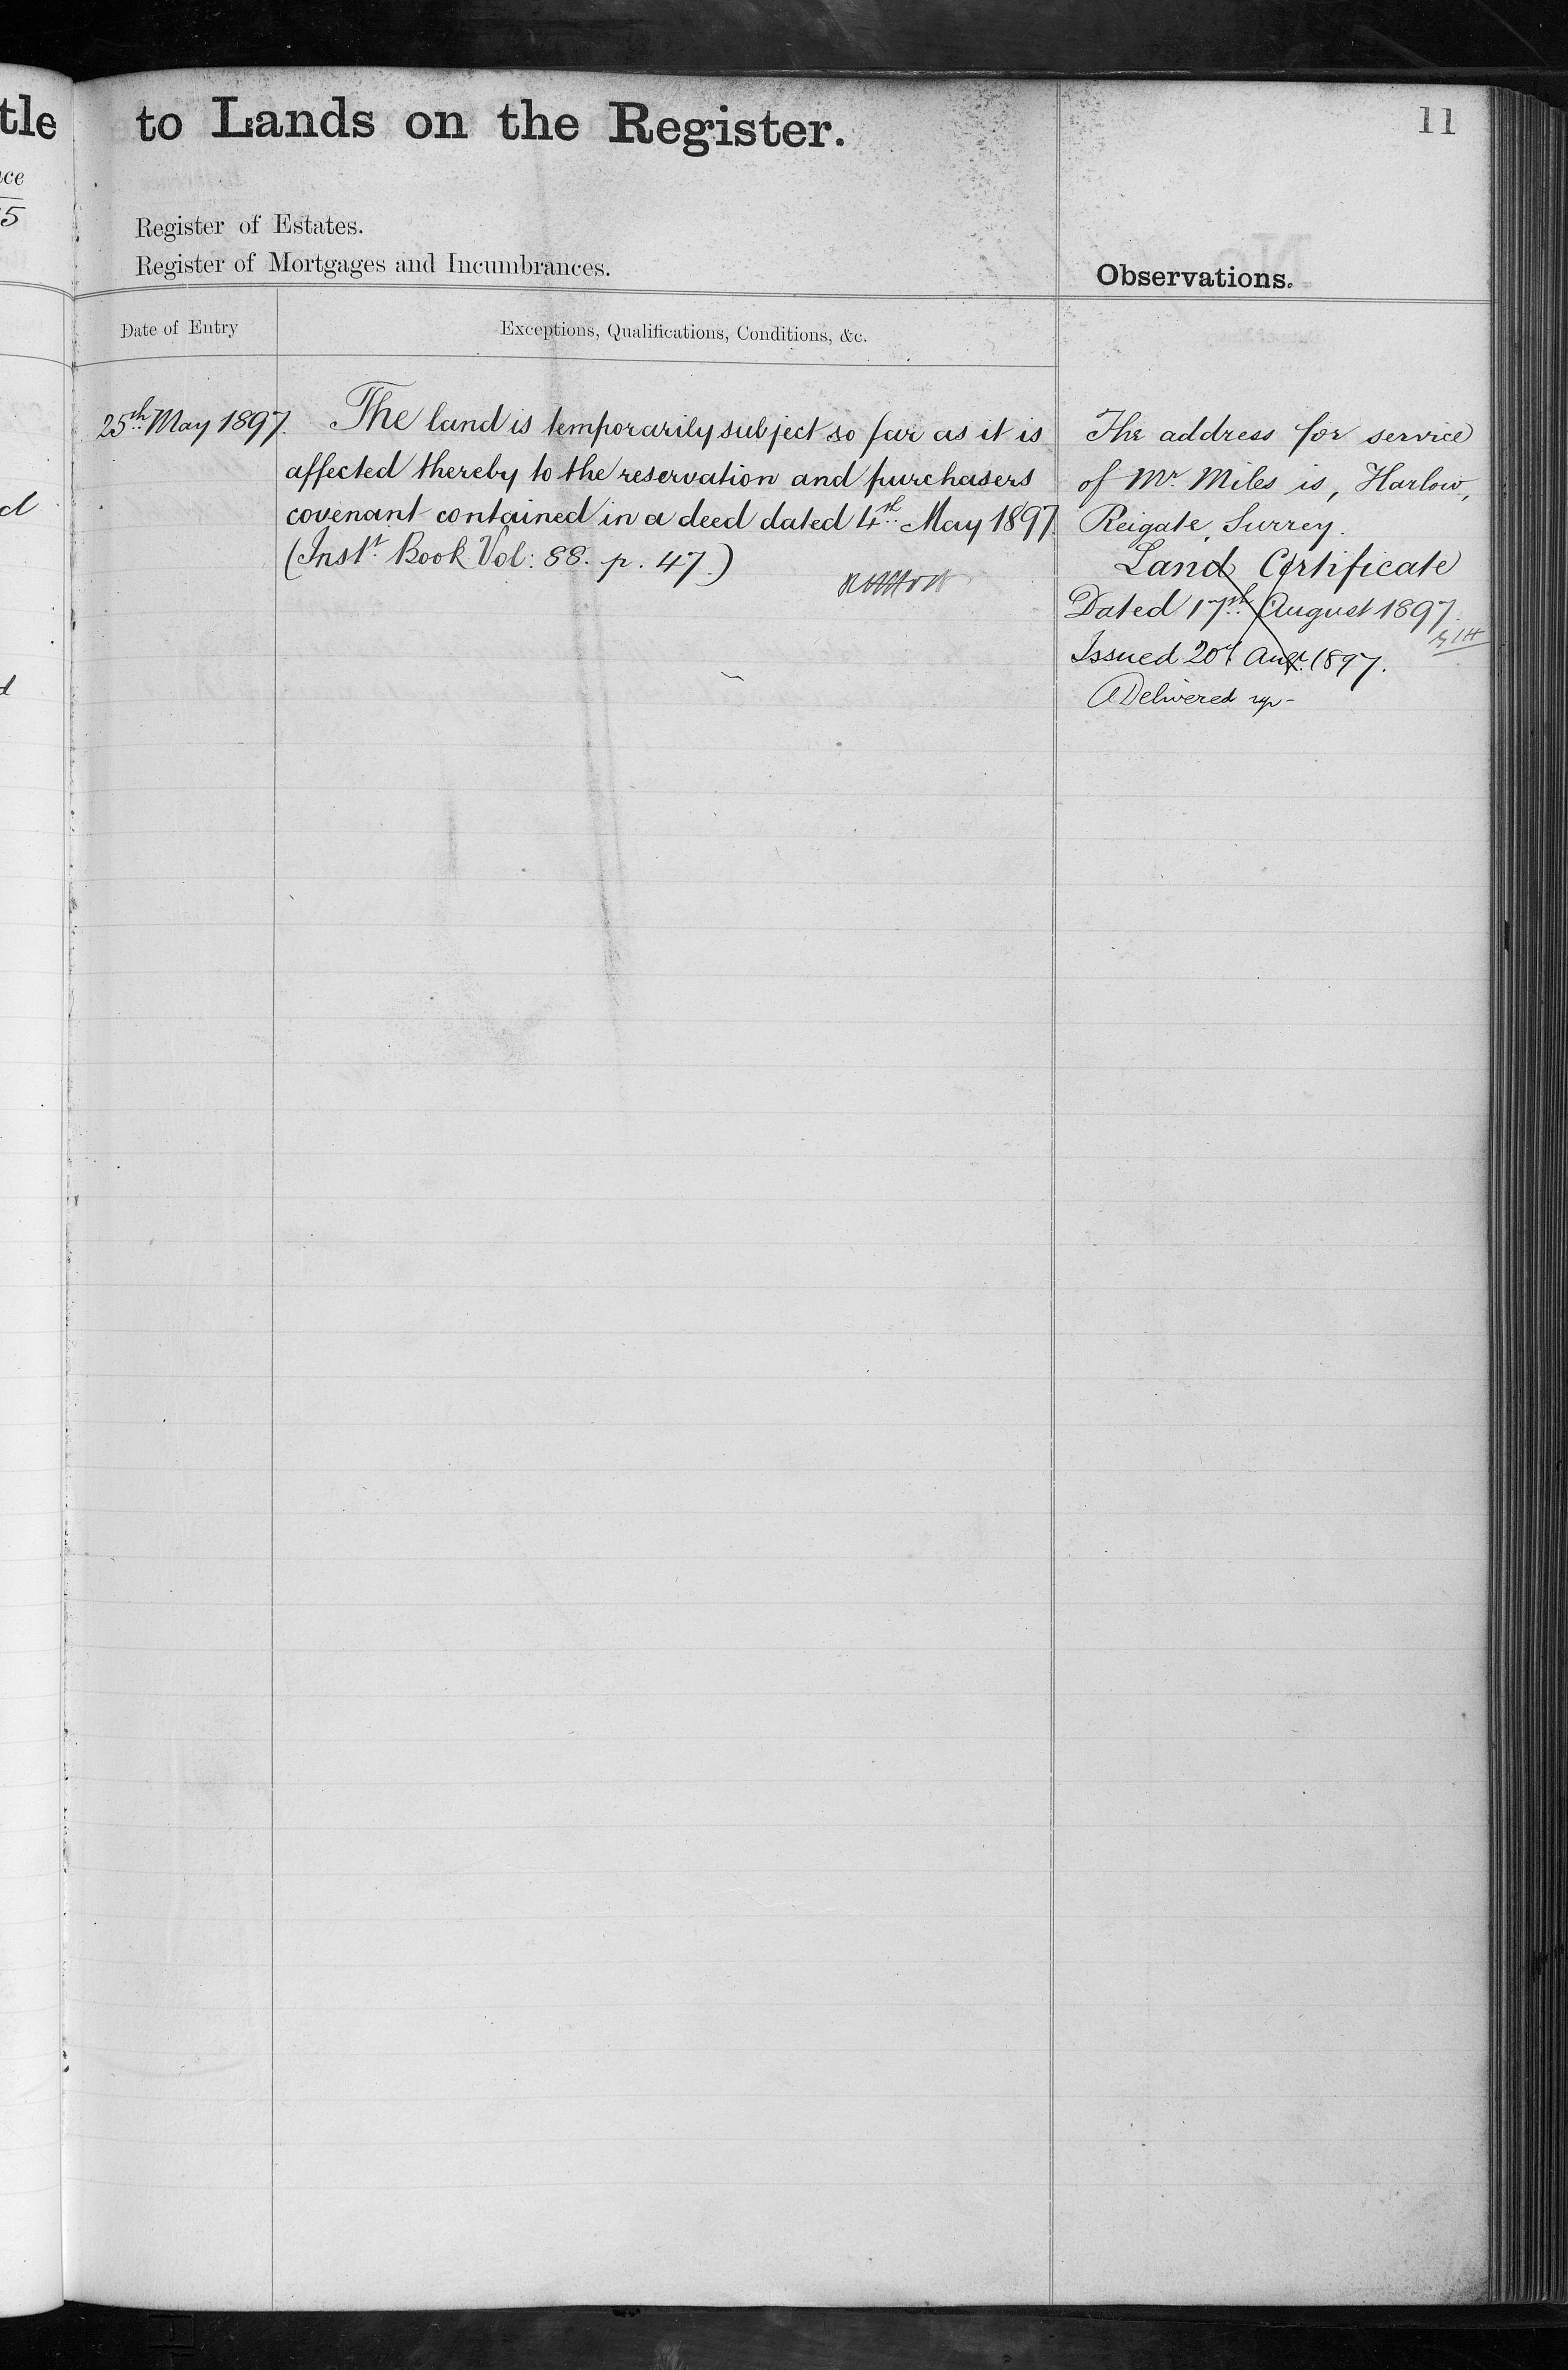 tle to Lands on the Register.
11
ce
5
Register of Estates.
Register of Mortgages and Incumbrances.
Observations.
Date of Entry
Exceptions, Qualifications, Conditions, &c.
25th May 1897.
The land is temporarily subject so far as it is
affected thereby to the reservation and purchasers
covenant contained in a deed dated 4th May 1897.
(Inst. Book Vol: 88. p. 47.)
The address for service
of Mr. Miles is, Harlow,
Reigate, Surrey.
Land Certificate
Dated 17th August 1897.
Issued 20th Augt. 1897.
Delivered up-
d
d